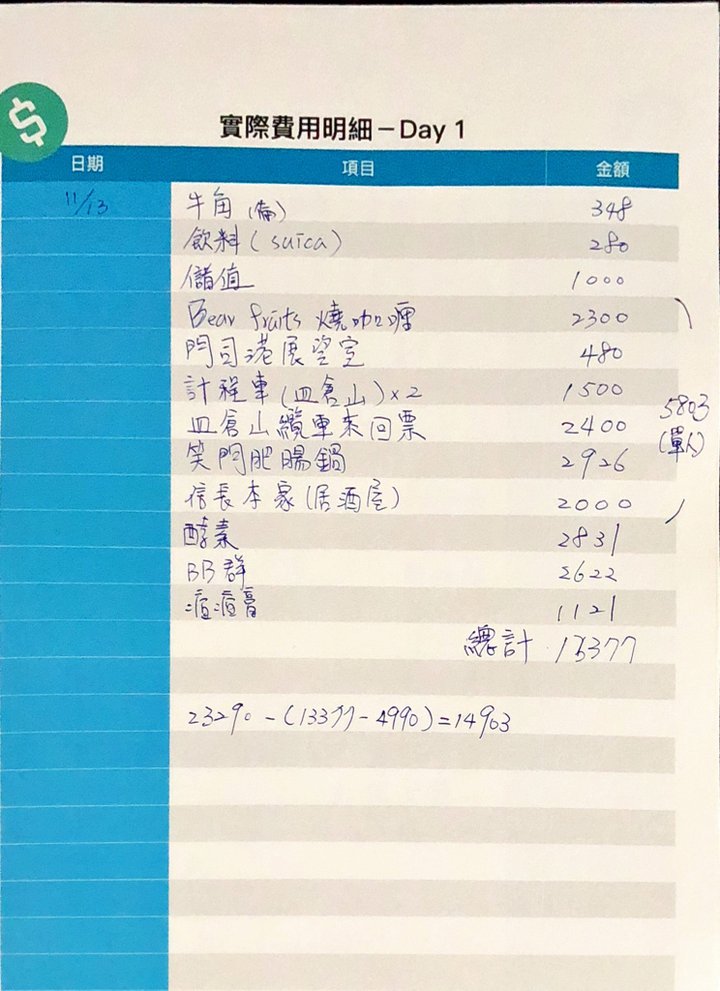 $
實際費用明細－Day 1
日期 項目 金額
11/13 牛角 348
飲料(suica) 280
儲值 1000
Bear fruits 燒咖喱 2300
門司港展望室 480
計程車(皿倉山)×2 1500
皿倉山纜車來回票 2400
5803
(單人)
笑門肥腸鍋 2926
信長本家(居酒屋) 2000
酵素 2831
BB群 2622
痘痘膏 1121
總計
23290-(13377-4990)=14903